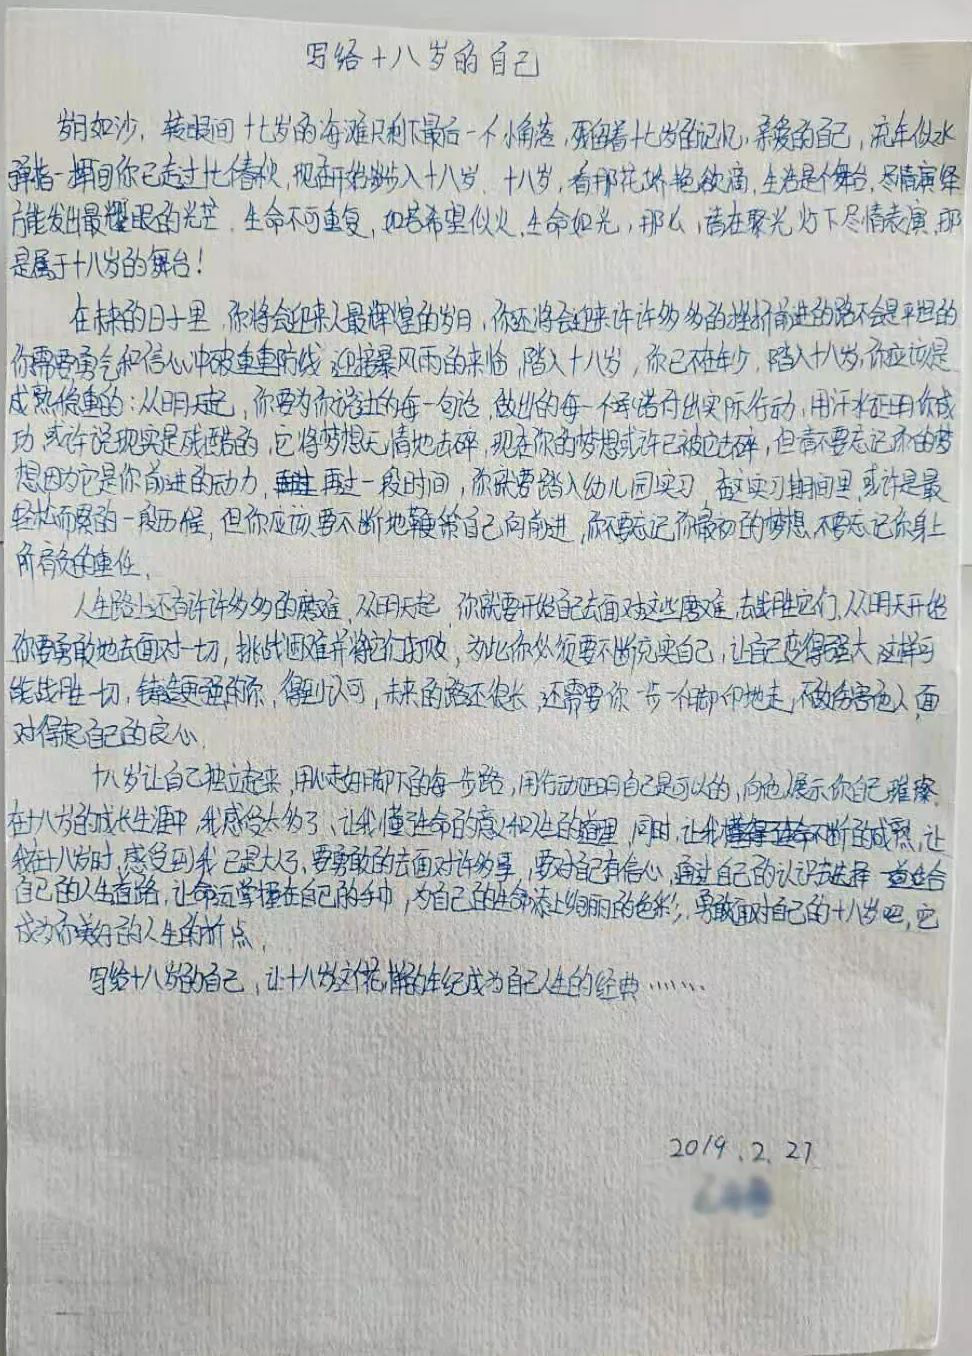 写给十八岁的自己
岁月如沙，转眼间十七岁的海滩只剩下最后一个小角落，残留着十七岁的记忆，亲爱的自己，流年似水
弹指一挥间你已走过十七春秋，现在开始步入十八岁、十八岁，看那花娇艳欲滴，生活是个舞台，尽情演绎
方能发出最耀眼的光芒．生命不可重复，如若希望似火，生命如光，那么，请在聚光灯下尽情表演，那
是属于十八岁的舞台！
在未来的日子里，你将会迎来人最辉煌的岁月，你还将会迎来许许多多的挫折前进的路不会是平坦的
你需要勇气和信心冲破重重防线 迎接暴风雨的来临，踏入十八岁，你已不在年少，踏入十八岁，你应该是
成熟稳重的：从明天起，你要为你说过的每一句话，做出的每一个承诺付出实际行动，用汗水证明你成
功 或许说现实是残酷的，它将梦想无情地击碎，现在你的梦想或许已被击碎，但请不要忘记你的梦
想因为它是你前进的动力，再过一段时间，你就要踏入幼儿园实习，在这实习期间里，或许是最
轻松而累的一段历程，但你应该要不断地鞭策自己向前进，你不要忘记你最初的梦想，不要忘记你身上
所肩负的重任．
人生路上还有许许多多的磨难，从明天起，你就要开始自己去面对这些磨难，去战胜它们，从明天开始
你要勇敢地去面对一切，挑战困难并将它们打败，为此你必须要不断充实自己，让自己变得强大 这样可
能战胜一切，铸造更强的你，得到认可，未来的路还很长，还需要你一步一个脚印地走，不敢伤害他人，面
对得起自己的良心．
十八岁让自己独立起来，用心走好脚下的每一步路，用行动证明自己是可以的，向他人展示你自己璀璨．
在十八岁的成长生涯中，我感受太多了，让我懂了生命的意义和人生的道理，同时，让我不断的成熟，让
我在十八岁时，感受到我已是大人了，要勇敢的去面对许多事，要对自己有信心，通过自己的认识去选择一道适合
自己的人生道路，让命运掌握在自己的手中，为自己的生命添上绚丽的色彩，勇敢面对自己的十八岁吧，它
成为你美好的人生的折点，
写给十八岁的自己，让十八岁这个花样的年纪成为自己人生的经典……
2019．2．27